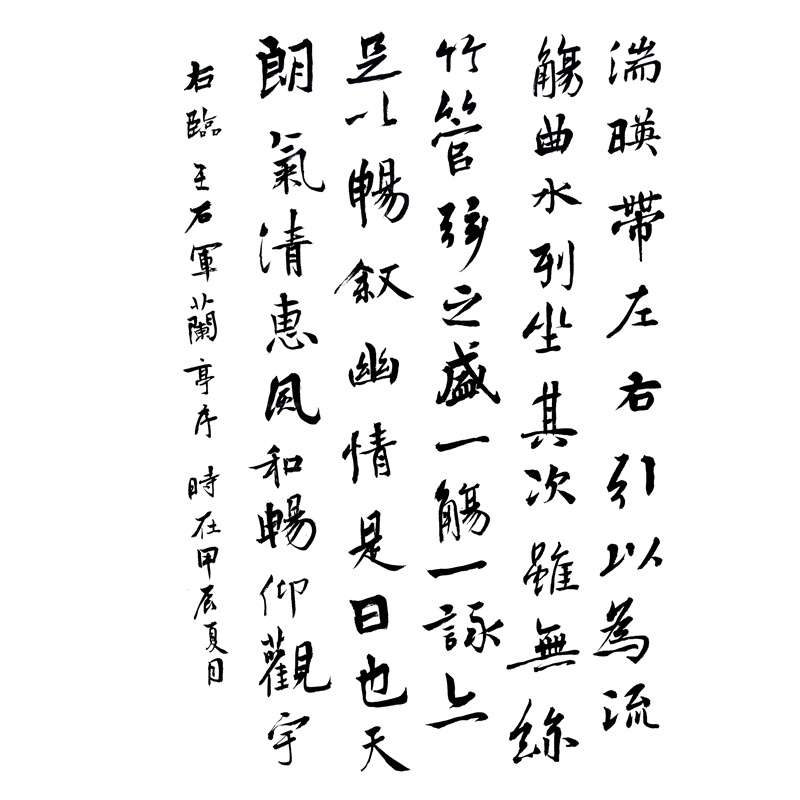 湍暎帶左右引以為流
觴曲水列坐其次雖無絲
竹管弦之盛一觴一詠亦
足以暢敘幽情是日也天
朗氣清惠風和暢仰觀宇
右臨王右軍蘭亭序時在甲辰夏月